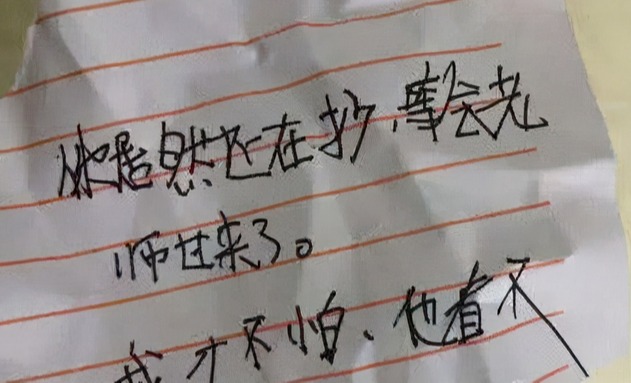 居然还在抄,等会老
师过来了。
我才不怕、他看不